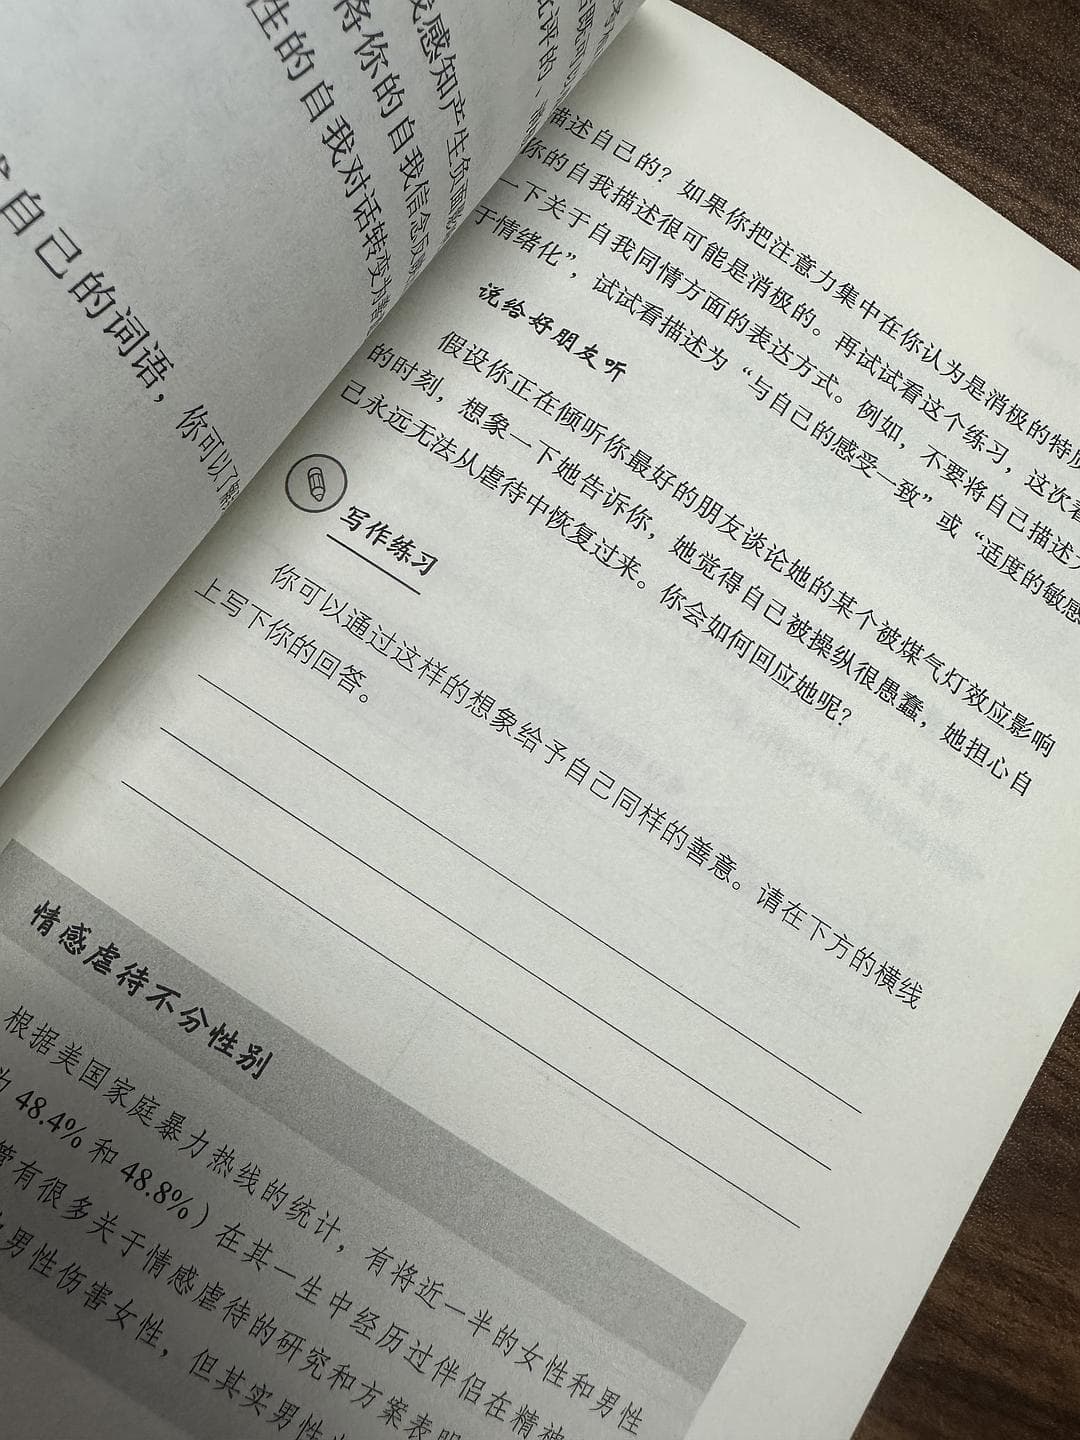 感知产生负面
将你的自我信念反
性的自我对话转变为
自己的词语，你可以了解
描述自己的？如果你把注意力集中在你认为是消极的特质
你的自我描述很可能是消极的。再试试看这个练习，这次着
一下关于自我同情方面的表达方式。例如，不要将自己描述为
于情绪化”，试试看描述为“与自己的感受一致”或“适度的敏感
说给好朋友听
假设你正在倾听你最好的朋友谈论她的某个被煤气灯效应影响
的时刻，想象一下她告诉你，她觉得自己被操纵很愚蠢，她担心自
己永远无法从虐待中恢复过来。你会如何回应她呢？
写作练习
你可以通过这样的想象给予自己同样的善意。请在下方的横线
上写下你的回答。
情感虐待不分性别
根据美国家庭暴力热线的统计，有将近一半的女性和男性
为 48.4% 和 48.8%）在其一生中经历过伴侣在精神
管有很多关于情感虐待的研究和方案表明
男性伤害女性，但其实男性